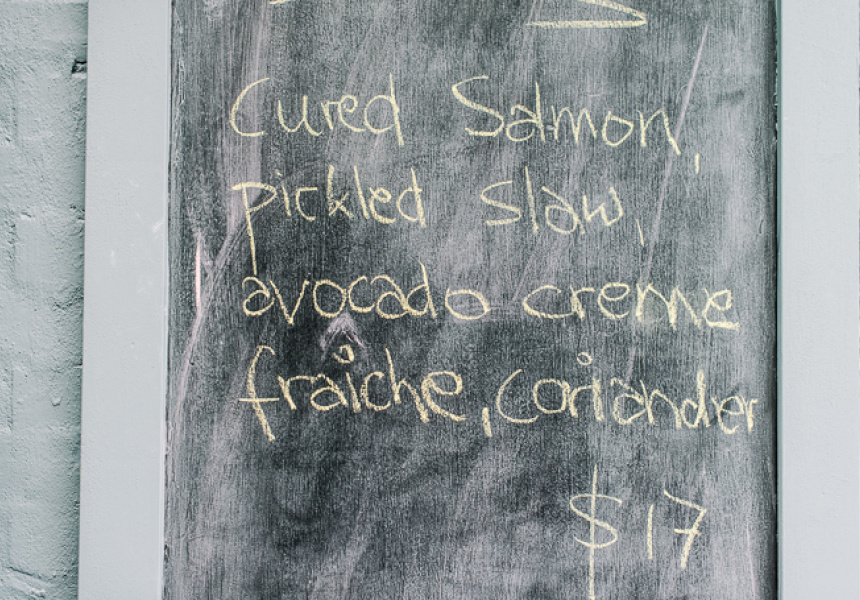 Cured Salmon,
pickled slaw,
avocado creme
fraiche, coriander
$17